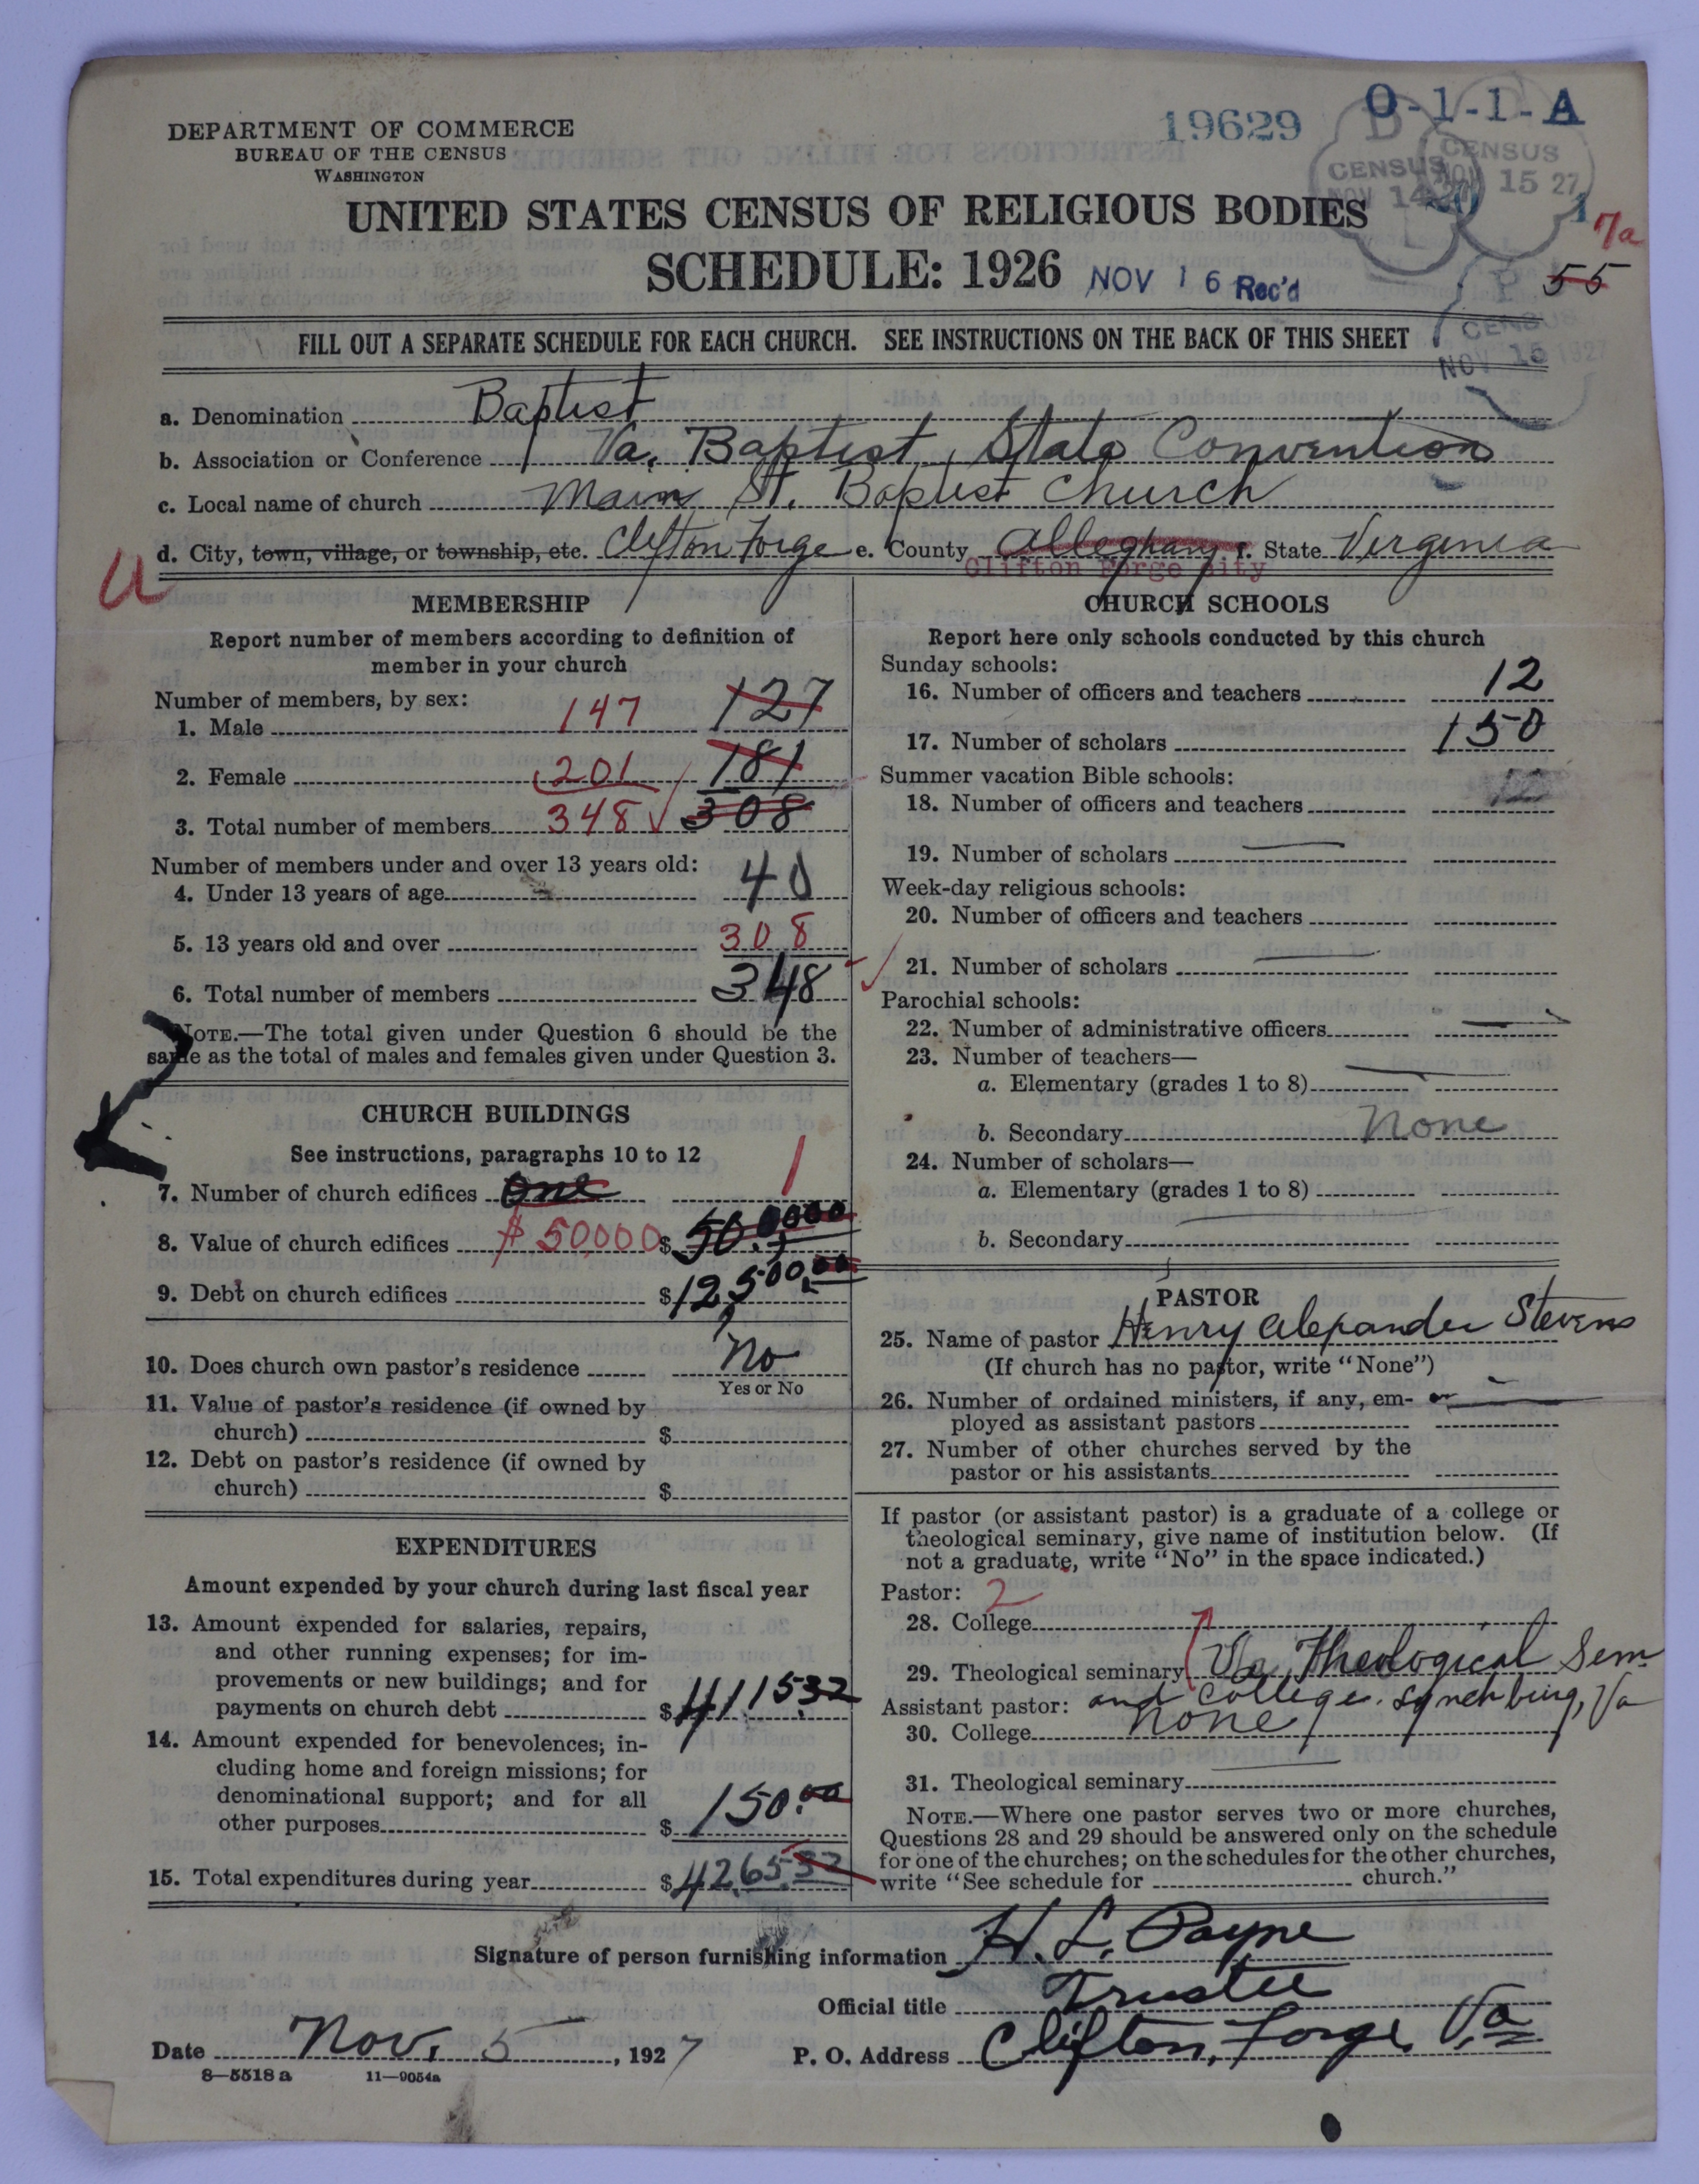 DEPARTMENT OF COMMERCE
BUREAU OF THE CENSUS
WASHINGTON
19629
O-1-1-A
CENSUS NOV 14
CENSUS NOV 15 27
UNITED STATES CENSUS OF RELIGIOUS BODIES
SCHEDULE: 1926
NOV 16 Rec'd
7a
55
CENSUS
NOV 15 1927
FILL OUT A SEPARATE SCHEDULE FOR EACH CHURCH. SEE INSTRUCTIONS ON THE BACK OF THIS SHEET
a. Denomination Baptist
b. Association or Conference Va. Baptist State Convention
c. Local name of church Main St. Baptist Church
d. City, town, village, or township, etc. Clifton Forge e. County Alleghany f. State Virginia
Clifton Forge City
U
MEMBERSHIP
Report number of members according to definition of
member in your church
Number of members, by sex:
1. Male 147 127
2. Female 201 181
3. Total number of members 348 308
Number of members under and over 13 years old:
4. Under 13 years of age 40
5. 13 years old and over 308
6. Total number of members 348
NOTE.—The total given under Question 6 should be the
same as the total of males and females given under Question 3.
CHURCH BUILDINGS
See instructions, paragraphs 10 to 12
7. Number of church edifices One 1
8. Value of church edifices $50000 $50,00000
9. Debt on church edifices $12,500.00
10. Does church own pastor's residence No
Yes or No
11. Value of pastor's residence (if owned by
church) $
12. Debt on pastor's residence (if owned by
church) $
EXPENDITURES
Amount expended by your church during last fiscal year
13. Amount expended for salaries, repairs,
and other running expenses; for im-
provements or new buildings; and for
payments on church debt $4115.32
14. Amount expended for benevolences; in-
cluding home and foreign missions; for
denominational support; and for all
other purposes $150.00
15. Total expenditures during year $4265.32
CHURCH SCHOOLS
Report here only schools conducted by this church
Sunday schools:
16. Number of officers and teachers 12
17. Number of scholars 150
Summer vacation Bible schools:
18. Number of officers and teachers
19. Number of scholars
Week-day religious schools:
20. Number of officers and teachers
21. Number of scholars
Parochial schools:
22. Number of administrative officers
23. Number of teachers—
a. Elementary (grades 1 to 8)
b. Secondary None
24. Number of scholars—
a. Elementary (grades 1 to 8)
b. Secondary
PASTOR
25. Name of pastor Henry Alexander Stevens
(If church has no pastor, write "None")
26. Number of ordained ministers, if any, em-
ployed as assistant pastors
27. Number of other churches served by the
pastor or his assistants
If pastor (or assistant pastor) is a graduate of a college or
theological seminary, give name of institution below. (If
not a graduate, write "No" in the space indicated.)
Pastor: 2
28. College
29. Theological seminary Va Theological Sem
Assistant pastor: and College. Lynchburg, Va
30. College none
31. Theological seminary
NOTE.—Where one pastor serves two or more churches,
Questions 28 and 29 should be answered only on the schedule
for one of the churches; on the schedules for the other churches,
write "See schedule for church."
Signature of person furnishing information H. L. Payne
Official title Trustee
Date Nov. 5, 1927 P. O. Address Clifton Forge Va
8—5518a 11—9054a